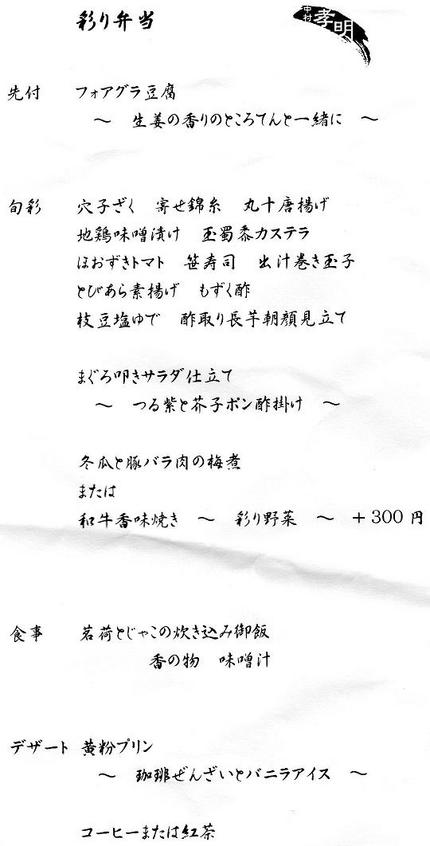 彩り弁当
中村孝明
先付 フォアグラ豆腐
～ 生姜の香りのところてんと一緒に ～
旬彩 穴子ざく 寄せ錦糸 丸十唐揚げ
地鶏味噌漬け 玉蜀黍カステラ
ほおずきトマト 笹寿司 出汁巻き玉子
とびあら素揚げ もずく酢
枝豆塩ゆで 酢取り長芋朝顔見立て
まぐろ叩きサラダ仕立て
～ つる紫と芥子ポン酢掛け ～
冬瓜と豚バラ肉の梅煮
または
和牛香味焼き ～ 彩り野菜 ～ ＋300円
食事 茗荷とじゃこの炊き込み御飯
香の物 味噌汁
デザート 黄粉プリン
～ 珈琲ぜんざいとバニラアイス ～
コーヒーまたは紅茶